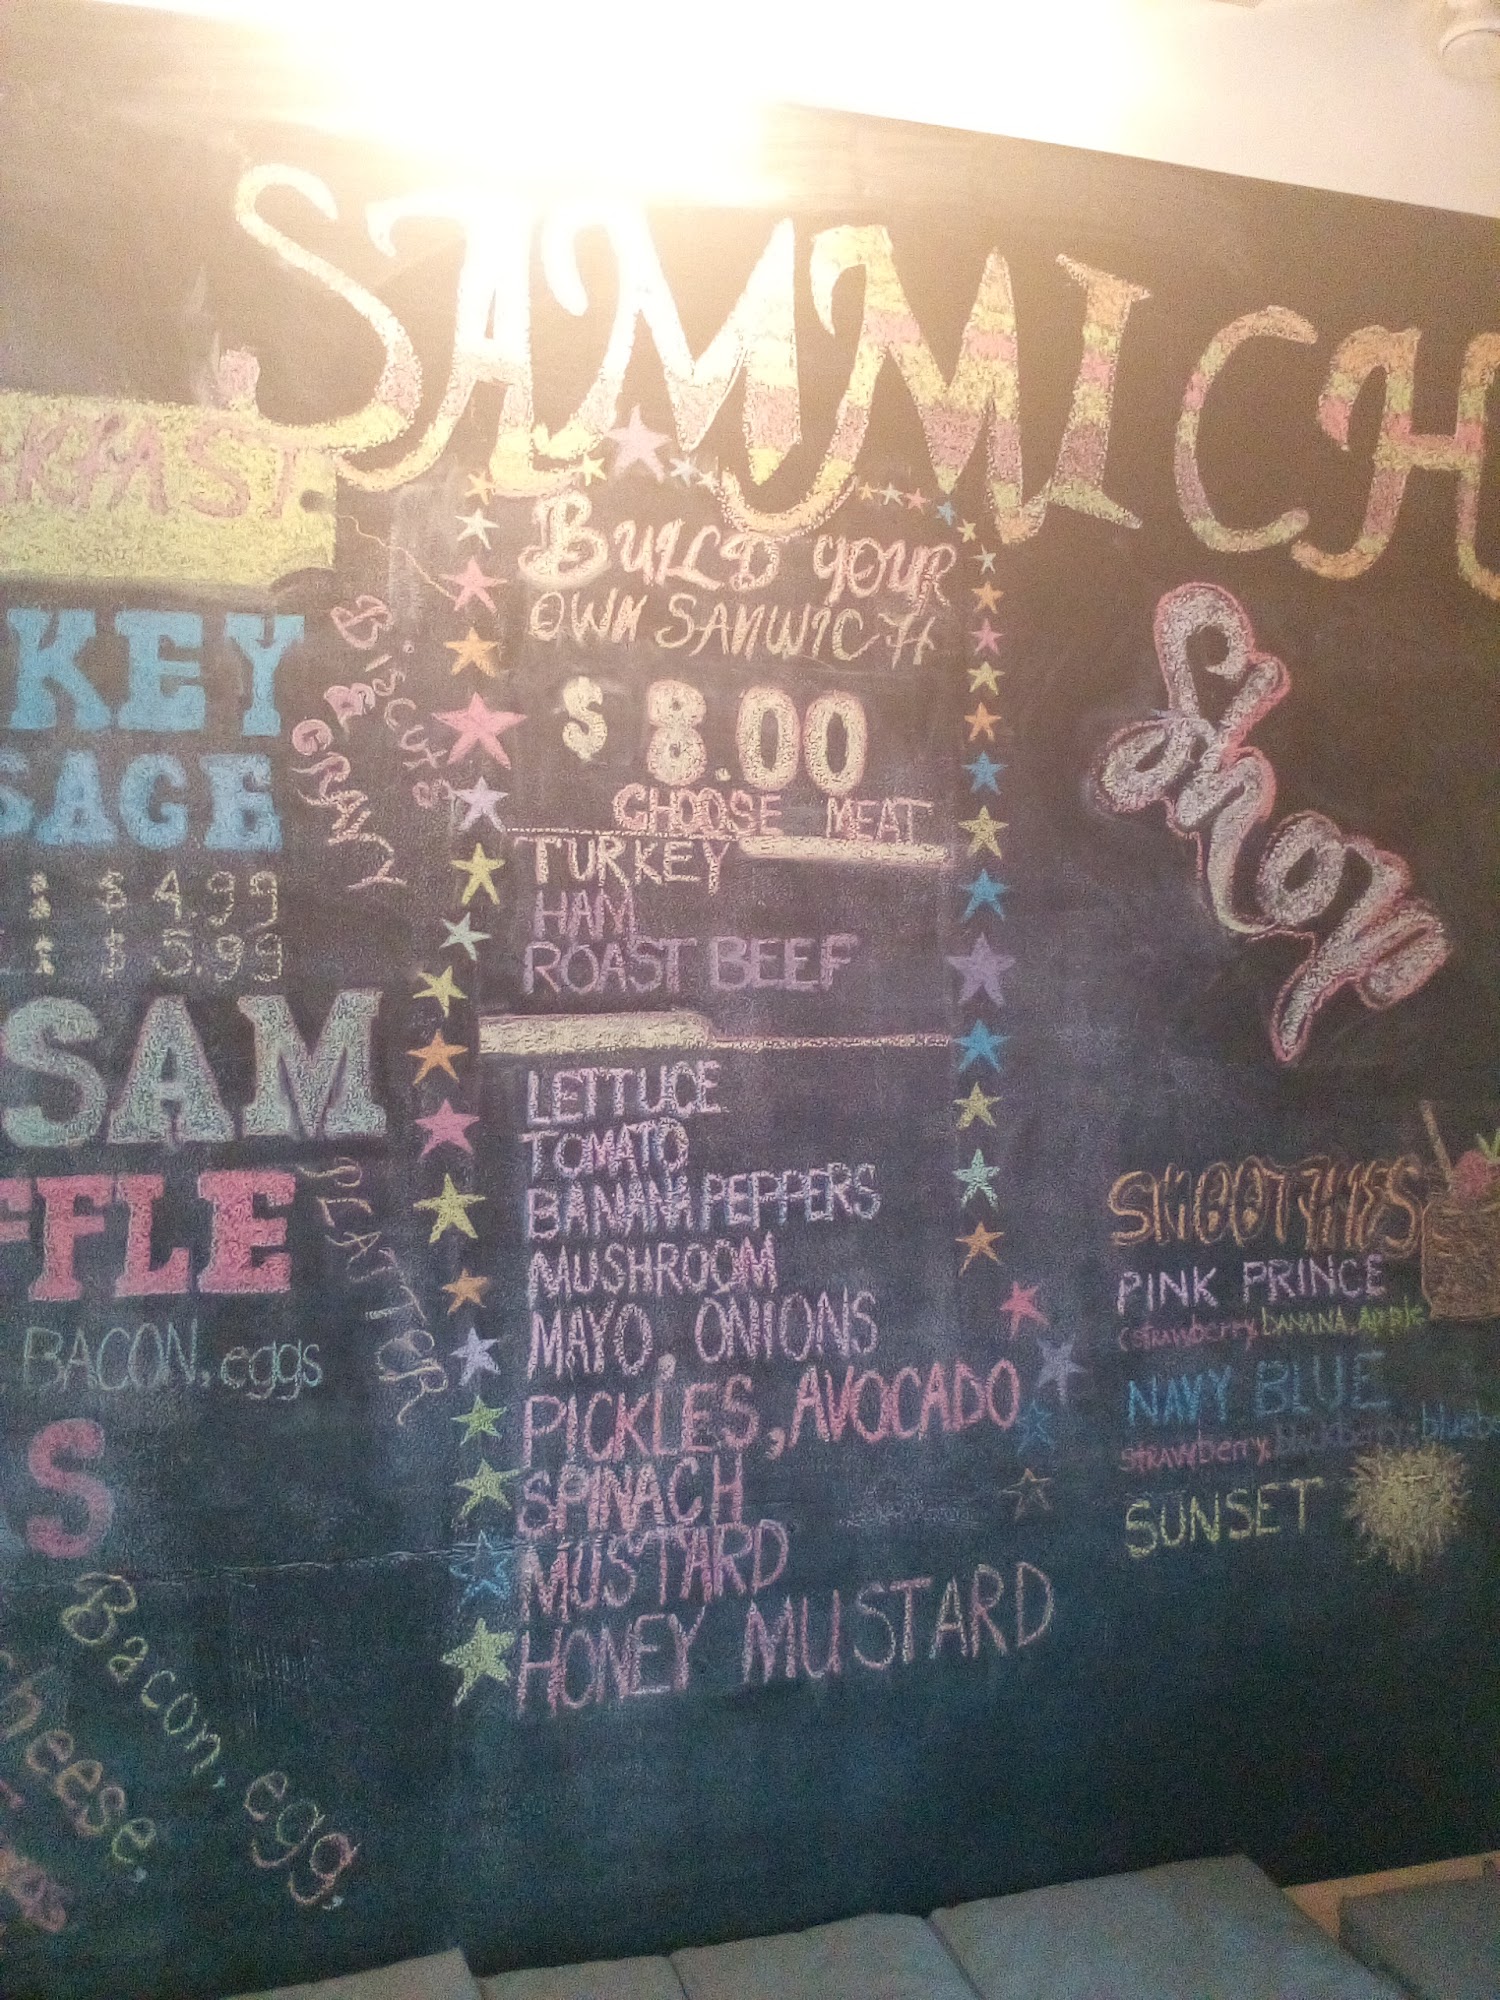 SAMMICH
Shop
KEY
SAGE
Biscuts
& GRAVY
$ 4.99
$ 5.99
SAM
FFLE
PLATTER
BACON, eggs
S
Bacon, egg,
cheese,
BUILD YOUR
OWN SANWICH
$ 8.00
CHOOSE MEAT
TURKEY
HAM
ROAST BEEF
LETTUCE
TOMATO
BANANA PEPPERS
MUSHROOM
MAYO, ONIONS
PICKLES, AVOCADO
SPINACH
MUSTARD
HONEY MUSTARD
SMOOTHIES
PINK PRINCE
(strawberry, BANANA, Apple
NAVY BLUE
strawberry, blackberry, blueb
SUNSET